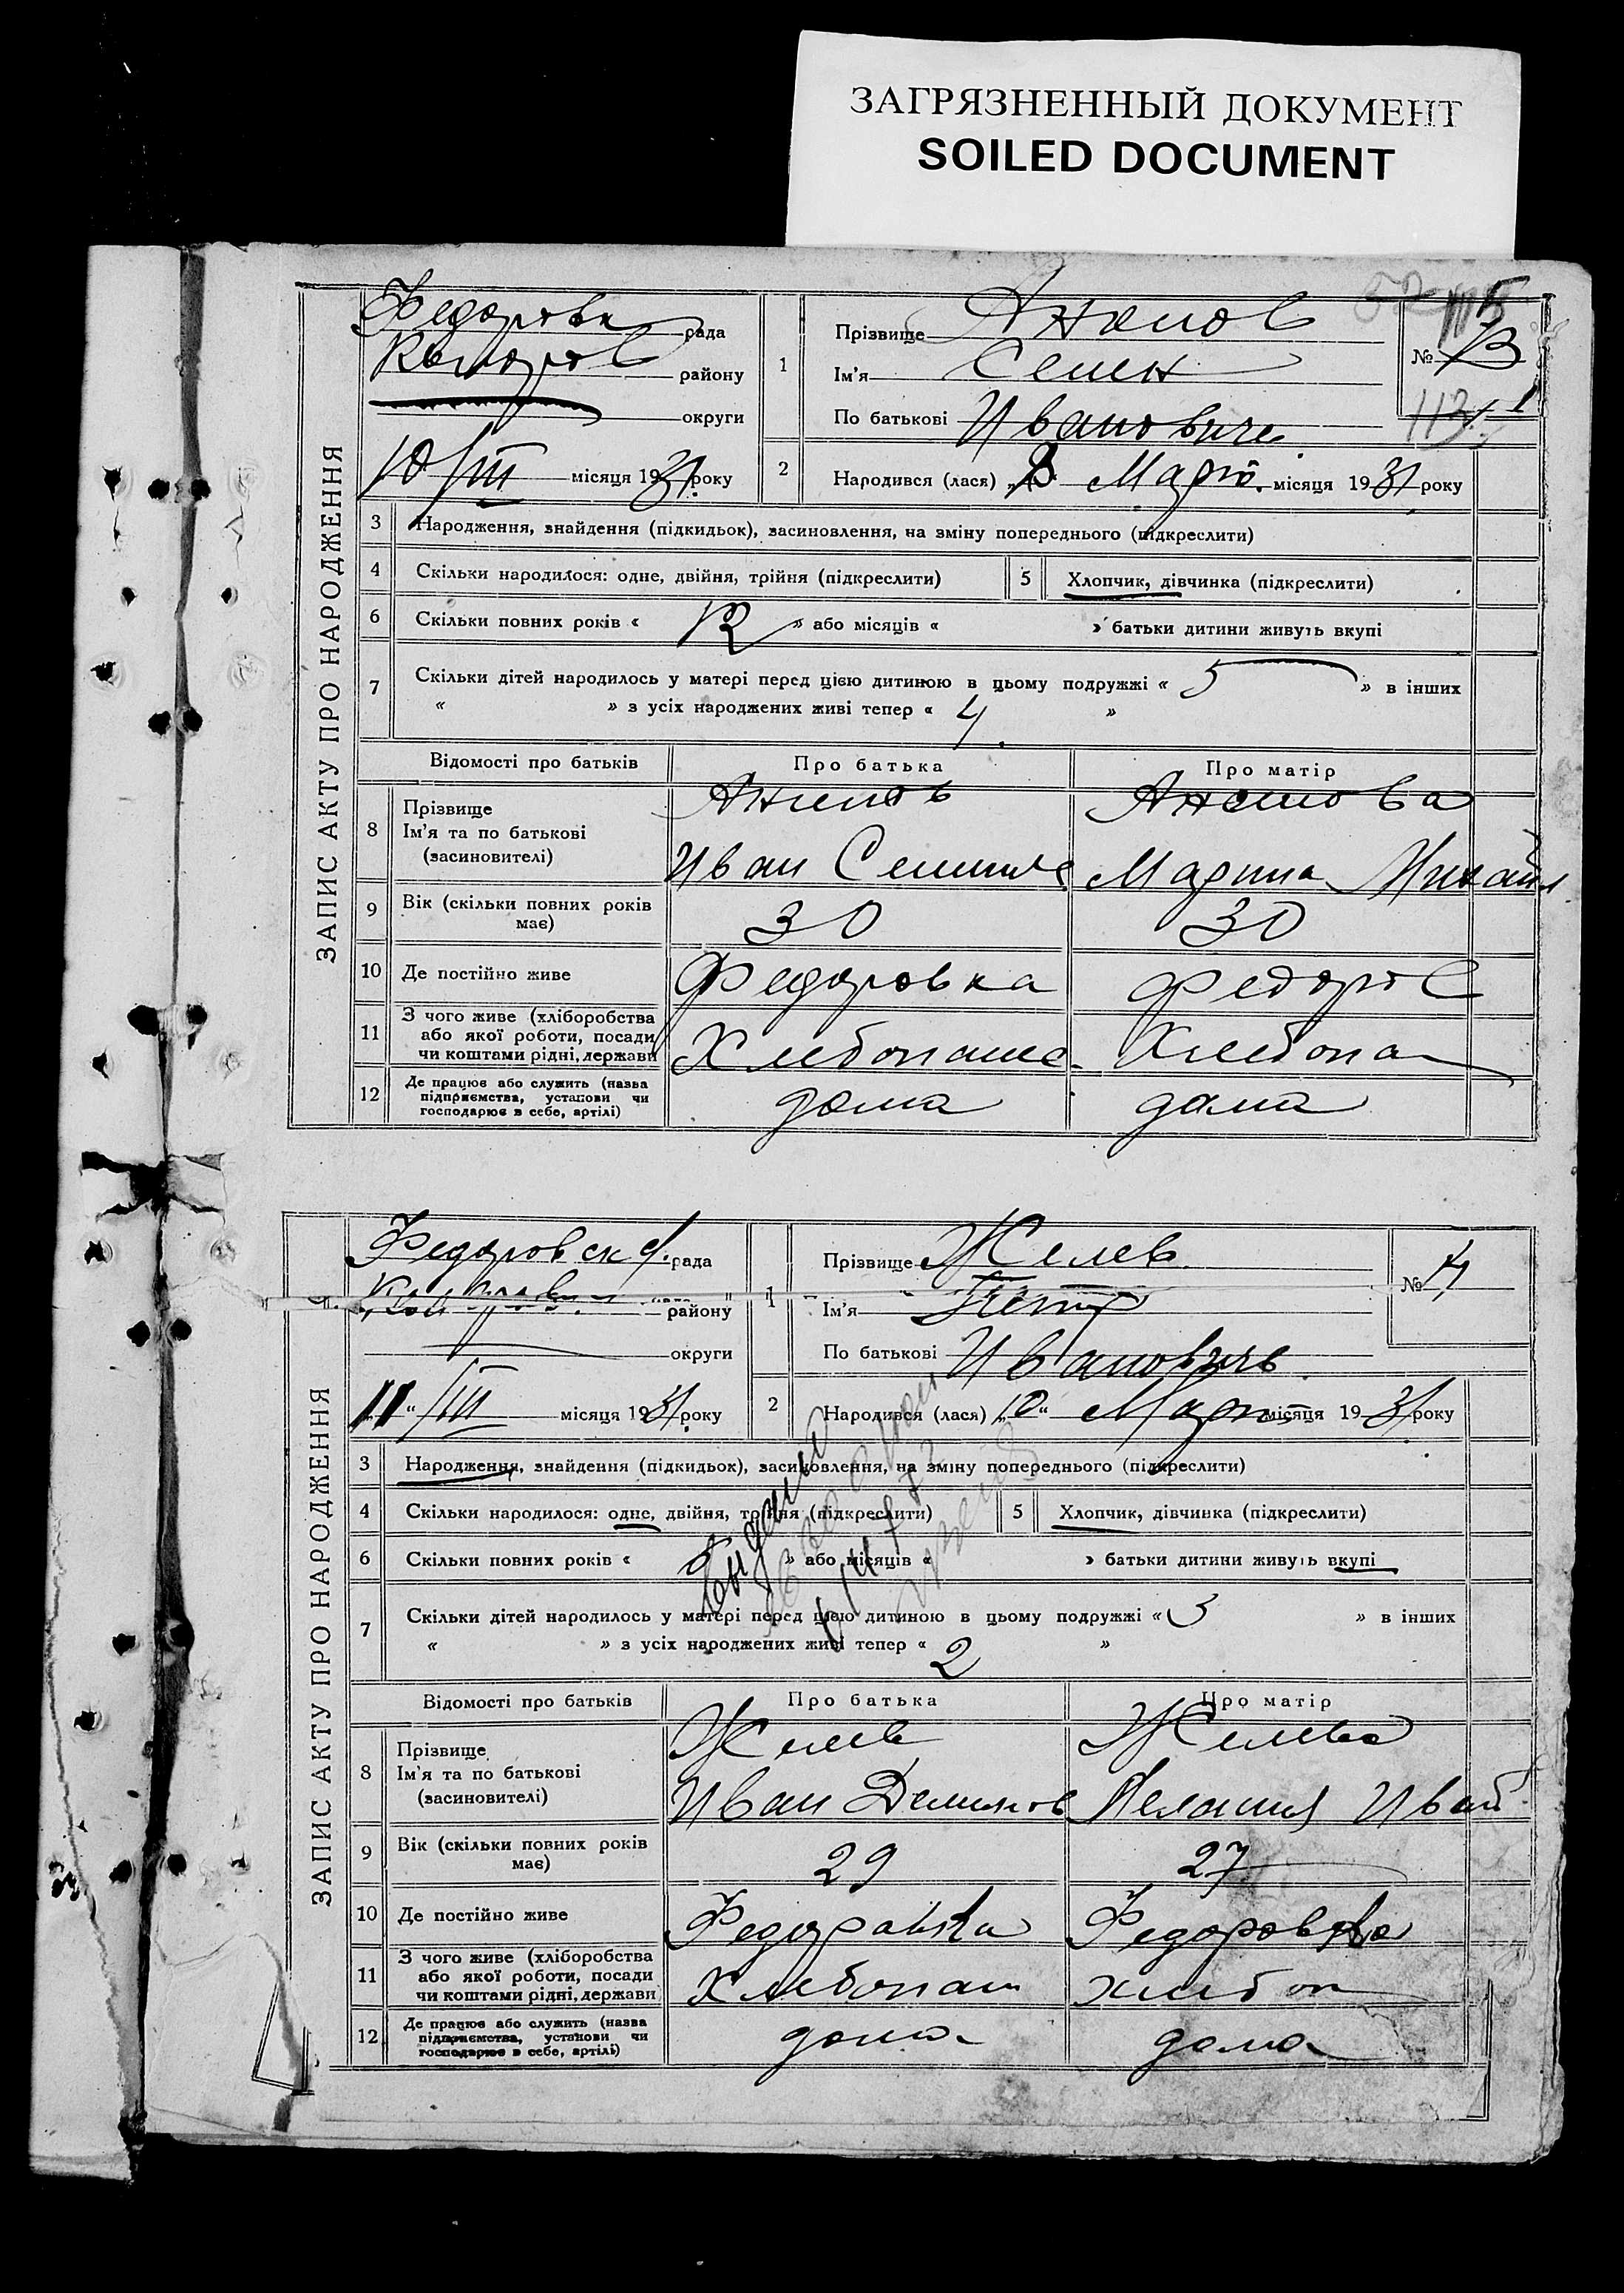 ЗАГРЯЗНЕННЫЙ ДОКУМЕНТ
SOILED DOCUMENT
ЗАПИС АКТУ ПРО НАРОДЖЕННЯ
рада
району
округи
10/III місяця 1931 року
1
Прізвище
Ім'я Семен
По батькові Иванович
№ 13
2
Народився (лася) „8 Март. місяця 1931 року
3 Народження, знайдення (підкидьок), засиновлення, на зміну попереднього (підкреслити)
4 Скільки народилося: одне, двійня, трійня (підкреслити)
5 Хлопчик, дівчинка (підкреслити)
6 Скільки повних років « 12 » або місяців « » батьки дитини живуть вкупі
7 Скільки дітей народилось у матері перед цією дитиною в цьому подружжі « 5 » в інших
« » з усіх народжених живі тепер « 4 »
Відомості про батьків Про батька Про матір
8 Прізвище
Ім'я та по батькові
(засиновителі)
Иван Марина Михайл
9 Вік (скільки повних років
має)
30 30
10 Де постійно живе Федоровка
11 З чого живе (хліборобства
або якої роботи, посади
чи коштами рідні, держави
12 Де працює або служить (назва
підприємства, установи чи
господарює в себе, артілі)
дома дома
ЗАПИС АКТУ ПРО НАРОДЖЕННЯ
Федоровск рада
району
округи
„11“ /III місяця 1931 року
1
Прізвище Желев
Ім'я Петр
По батькові Ивановичь
№ 14
2
Народився (лася) „10“ Март місяця 1931 року
3 Народження, знайдення (підкидьок), засиновлення, на зміну попереднього (підкреслити)
4 Скільки народилося: одне, двійня, трійня (підкреслити)
5 Хлопчик, дівчинка (підкреслити)
6 Скільки повних років « » або місяців « » батьки дитини живуть вкупі
7 Скільки дітей народилось у матері перед цією дитиною в цьому подружжі « 3 » в інших
« » з усіх народжених живі тепер « 2 »
Відомості про батьків Про батька Про матір
8 Прізвище
Ім'я та по батькові
(засиновителі)
Желев Желева
Иван Пелагия Иван
9 Вік (скільки повних років
має)
29 27
10 Де постійно живе Федоровка Федоровка
11 З чого живе (хліборобства
або якої роботи, посади
чи коштами рідні, держави
Хлебопаш хлебоп
12 Де працює або служить (назва
підприємства, установи чи
господарює в себе, артілі)
дома дома